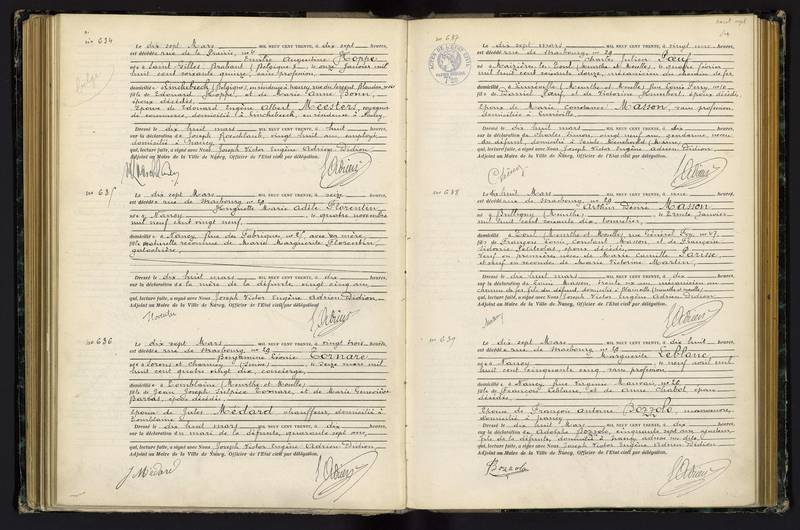 N° 634
Le dix sept Mars MIL NEUF CENT TRENTE, à dix sept heures,
est décédée rue de la Prairie, n° 4
Emilie Augustine Hoppe
née à Saint Gilles Brabant (Belgique), le onze Janvier mil
huit cent soixante quinze, sans profession,
domiciliée à Linckebeeck (Belgique), en résidence à Nancy
fille de Edouard Hoppe, et de Marie Anne Bonn,
époux décédés.
Epouse de Edouard Eugène Albert Meesters, voyageur
de commerce, domicilié à Linckebeeck, en résidence à Nancy.
Dressé le dix huit mars, MIL NEUF CENT TRENTE, à huit heures,
sur la déclaration de Joseph Rosenblank, vingt huit ans, employé,
domicilié à Nancy,
qui, lecture faite, a signé avec Nous Joseph Victor Eugène Adrien Didion,
Adjoint au Maire de la Ville de Nancy, Officier de l'Etat civil par délégation.
N° 635
Le dix sept Mars MIL NEUF CENT TRENTE, à seize heures,
est décédée rue de Strasbourg n° 29
Henriette Marie Adèle Florentin,
née à Nancy, le quatre novembre
mil neuf cent vingt neuf,
domiciliée à Nancy, rue des Fabriques, n° 25, avec sa mère,
fille naturelle reconnue de Marie Marguerite Florentin,
giletière,
Dressé le dix huit mars, MIL NEUF CENT TRENTE, à dix heures,
sur la déclaration de la mère de la défunte, vingt cinq ans,
qui, lecture faite, a signé avec Nous Joseph Victor Eugène Adrien Didion,
Adjoint au Maire de la Ville de Nancy, Officier de l'Etat civil par délégation.
N° 636
Le dix sept Mars MIL NEUF CENT TRENTE, à vingt trois heures,
est décédée rue de Strasbourg, n° 29
Benjamine Léonie Cornare,
née à seize mars mil
huit cent quatre vingt dix, concierge,
domiciliée à Tomblaine (Meurthe et Moselle)
fille de Jean Sulpice Cornare, et de Marie Geneviève
Barras, époux décédés.
Epouse de Jules Médard, chauffeur, domicilié à
Tomblaine
Dressé le dix huit Mars, MIL NEUF CENT TRENTE, à dix heures,
sur la déclaration du mari de la défunte, quarante sept ans,
qui, lecture faite, a signé avec Nous Joseph Victor Eugène Adrien Didion,
Adjoint au Maire de la Ville de Nancy, Officier de l'Etat civil par délégation.
J Médard
N° 637
Le dix sept mars, MIL NEUF CENT TRENTE, à vingt une heures,
est décédé rue de Strasbourg, n° 29
Charles Julien Pœuf
né à Maizières les Toul (Meurthe et Moselle), le quatre février
mil huit cent soixante douze, mécanicien du chemin de fer,
domicilié à Lunéville (Meurthe et Moselle)
Epoux de Marie Constance Masson, sans profession,
domiciliée à Lunéville.
Dressé le dix huit mars, MIL NEUF CENT TRENTE, à dix heures,
sur la déclaration de Charles Simon, vingt neuf ans, gendarme,
qui, lecture faite, a signé avec Nous Joseph Victor Eugène Adrien Didion,
Adjoint au Maire de la Ville de Nancy, Officier de l'Etat civil par délégation.
N° 638
Le huit Mars, MIL NEUF CENT TRENTE, à heures,
est décédé rue de Strasbourg n° 29
Arthur Désiré Masson
né à Bulligny (Meurthe), le trente Janvier
mil huit cent soixante dix, tonnelier,
domicilié à Toul (Meurthe et Moselle), rue Général
fils de François Louis Constant Masson et de Françoise
époux décédés.
Veuf en premières noces de Marie Camille Parisse
et veuf en secondes de Marie Victorine Martin,
Dressé le dix huit mars, MIL NEUF CENT TRENTE, à dix heures,
sur la déclaration de Louis Masson, trente six ans, mécanicien au
chemin de fer, fils du défunt, domicilié à
qui, lecture faite, a signé avec Nous Joseph Victor Eugène Adrien Didion
Adjoint au Maire de la Ville de Nancy, Officier de l'Etat civil par délégation.
N° 639
Le dix sept Mars, MIL NEUF CENT TRENTE, à dix huit heures,
est décédée rue de Strasbourg, n° 29
Marguerite Leblanc
née à Nancy, le neuf avril mil
huit cent cinquante cinq, sans profession,
domiciliée à Nancy, rue
fille de François Leblanc, et de Anne Chabot, époux
décédés.
Epouse de François Antoine Bozzolo, manœuvre,
domicilié à Nancy.
Dressé le dix huit Mars, MIL NEUF CENT TRENTE, à dix heures,
sur la déclaration de Adolphe Bozzolo, cinquante sept ans,
fils de la défunte, domicilié à Nancy,
qui, lecture faite, a signé avec Nous Joseph Victor Eugène Adrien Didion
Adjoint au Maire de la Ville de Nancy, Officier de l'Etat civil par délégation.
Bozzolo